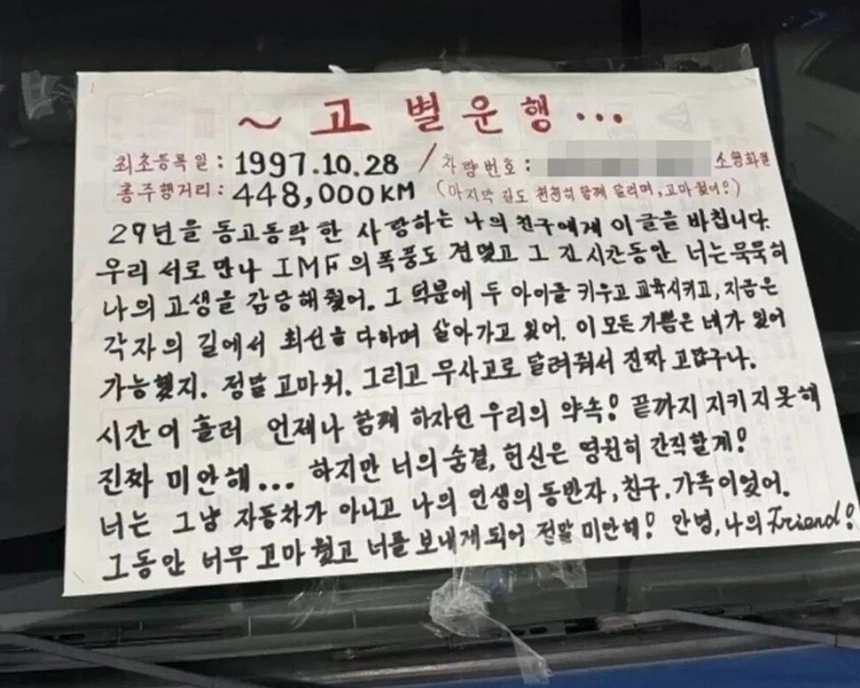 ~ 고 별 운 행 ...
최초등록일 : 1997.10.28 / 차량번호 : 소형화물
총주행거리 : 448,000KM (마지막 길도 천천히 함께 달리며, 고마웠어!)
29년을 동고동락 한 사랑하는 나의 친구에게 이 글을 바칩니다.
우리 서로 만나 IMF의 폭풍도 견뎠고 그 긴 시간동안 너는 묵묵히
나의 고생을 감당해줬어. 그 덕분에 두 아이를 키우고 교육시키고, 지금은
각자의 길에서 최선을 다하며 살아가고 있어. 이 모든 기쁨은 네가 있어
가능했지. 정말 고마워. 그리고 무사고로 달려줘서 진짜 고맙구나.
시간이 흘러 언제나 함께 하자던 우리의 약속! 끝까지 지키지 못해
진짜 미안해... 하지만 너의 숨결, 헌신은 영원히 간직할게!
너는 그냥 자동차가 아니고 나의 인생의 동반자, 친구, 가족이었어.
그동안 너무 고마웠고 너를 보내게 되어 정말 미안해! 안녕, 나의 Friend!